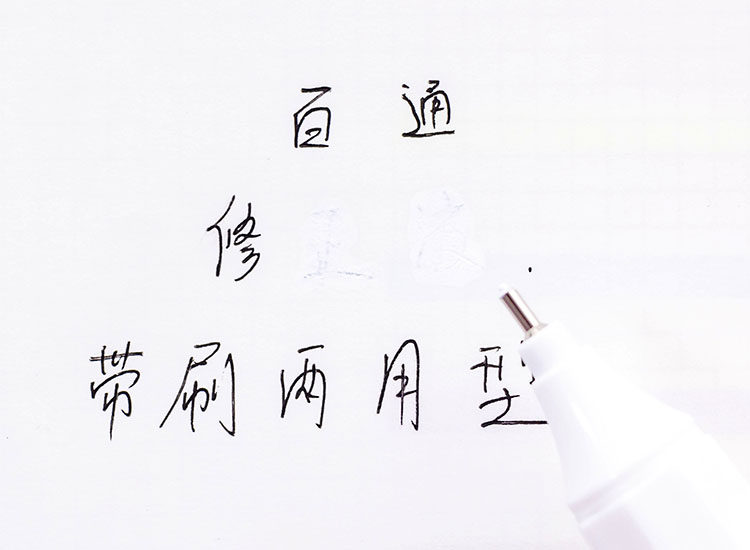 百通
修正液.
带刷两用型